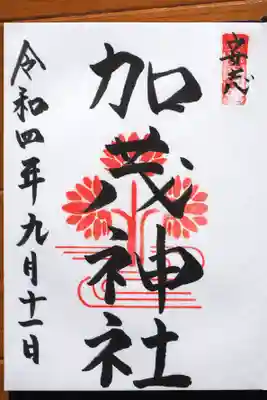 加茂神社
令和四年九月十一日